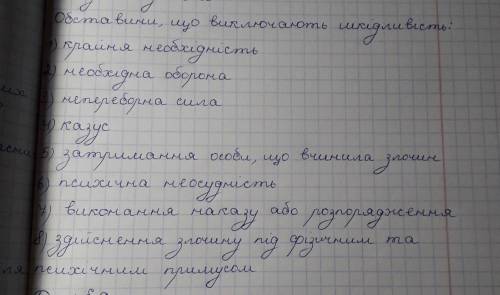 Обставини, що виключають шкідливість:
1) крайня необхідність
2) необхідна оборона
3) непереборна сила
4) казус
5) затримання особи, що вчинила злочин
6) психічна неосудність
7) виконання наказу або розпорядження
8) здійснення злочину під фізичним та
психічним примусом